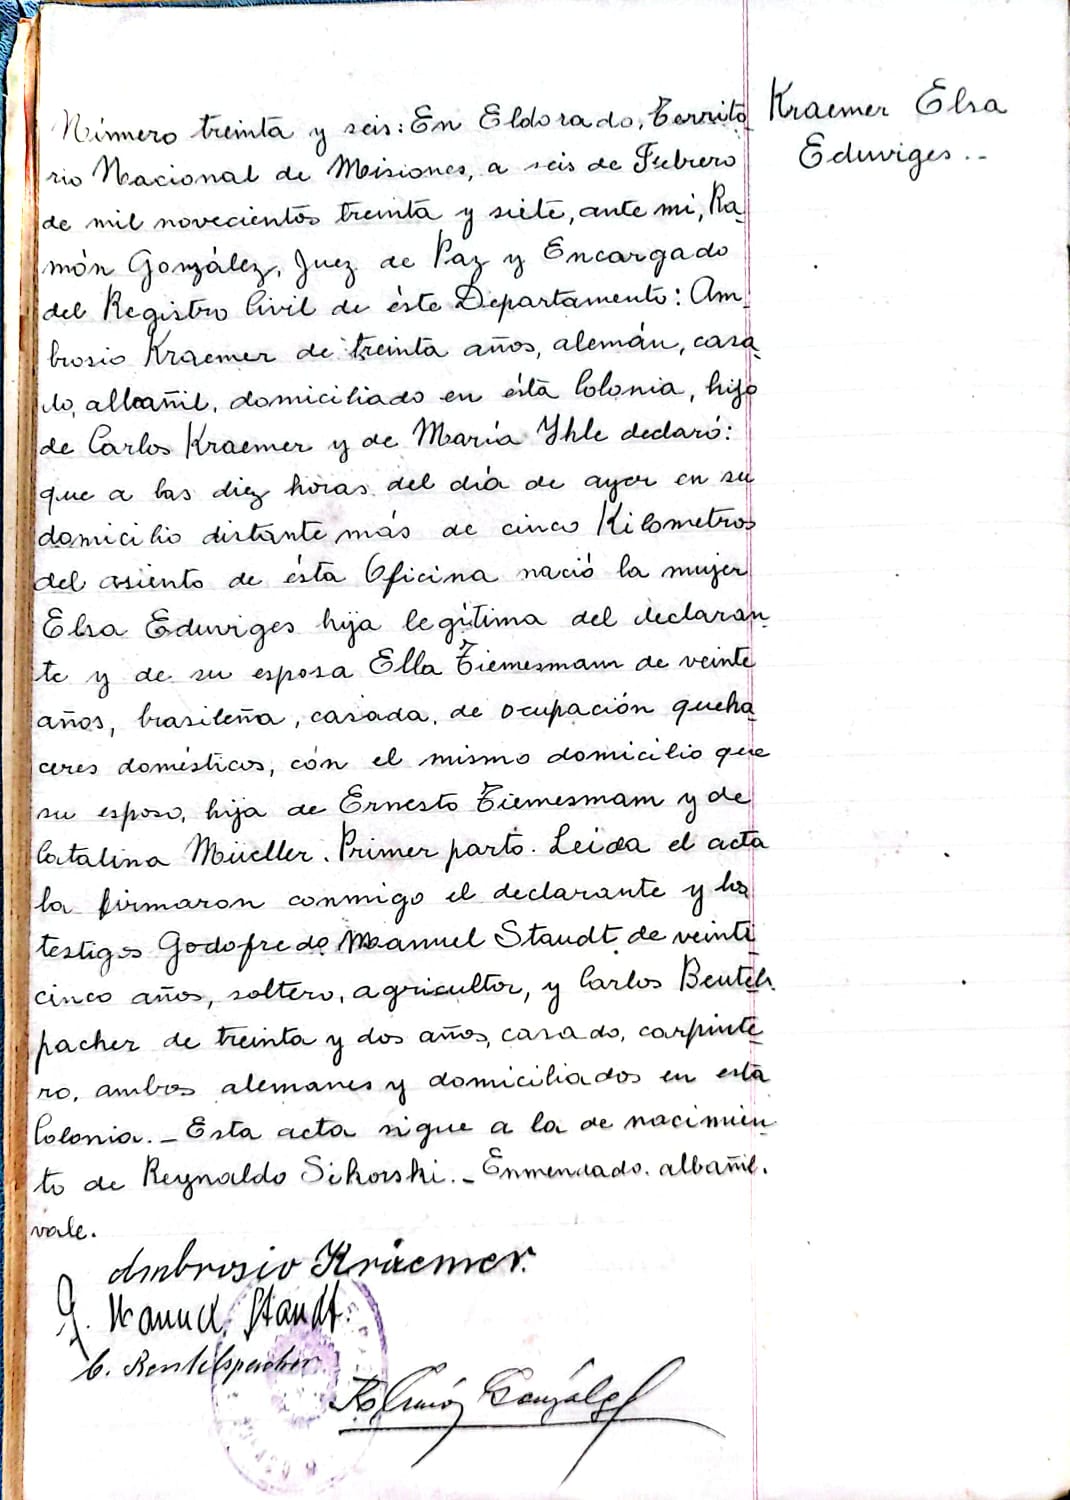 Número treinta y seis: En Eldorado, Territo
rio Nacional de Misiones, a seis de Febrero
de mil novecientos treinta y siete, ante mi, Ra
món González, Juez de Paz y Encargado
del Registro Civil de éste Departamento: Am
brosio Kraemer de treinta años, alemán, casa
do, albañil, domiciliado en ésta Colonia, hijo
de Carlos Kraemer y de María Yhle declaró:
que a las diez horas del día de ayer en su
domicilio distante más de cinco Kilometros
del asiento de ésta Oficina nació la mujer
Elsa Eduviges hija legítima del declaran
te y de su esposa Ella Tiemesmam de veinte
años, brasileña, casada, de ocupación queha
ceres domésticos, cón el mismo domicilio que
su esposo, hija de Ernesto Tiemesmam y de
Catalina Müeller. Primer parto. Leida el acta
la firmaron conmigo el declarante y los
testigos Godofredo Manuel Staudt de veinti
cinco años, soltero, agricultor, y Carlos Beutels
pacher de treinta y dos años, casado, carpinte
ro, ambos alemanes y domiciliados en esta
Colonia._ Esta acta sigue a la de nacimien
to de Reynaldo Sikorski._ Enmendado. albañil.
vale.
Kraemer Elsa
Eduviges..
Ambrosio Kraemer.
G. Manuel Staudt.
C. Beutelspacher
Ramón González